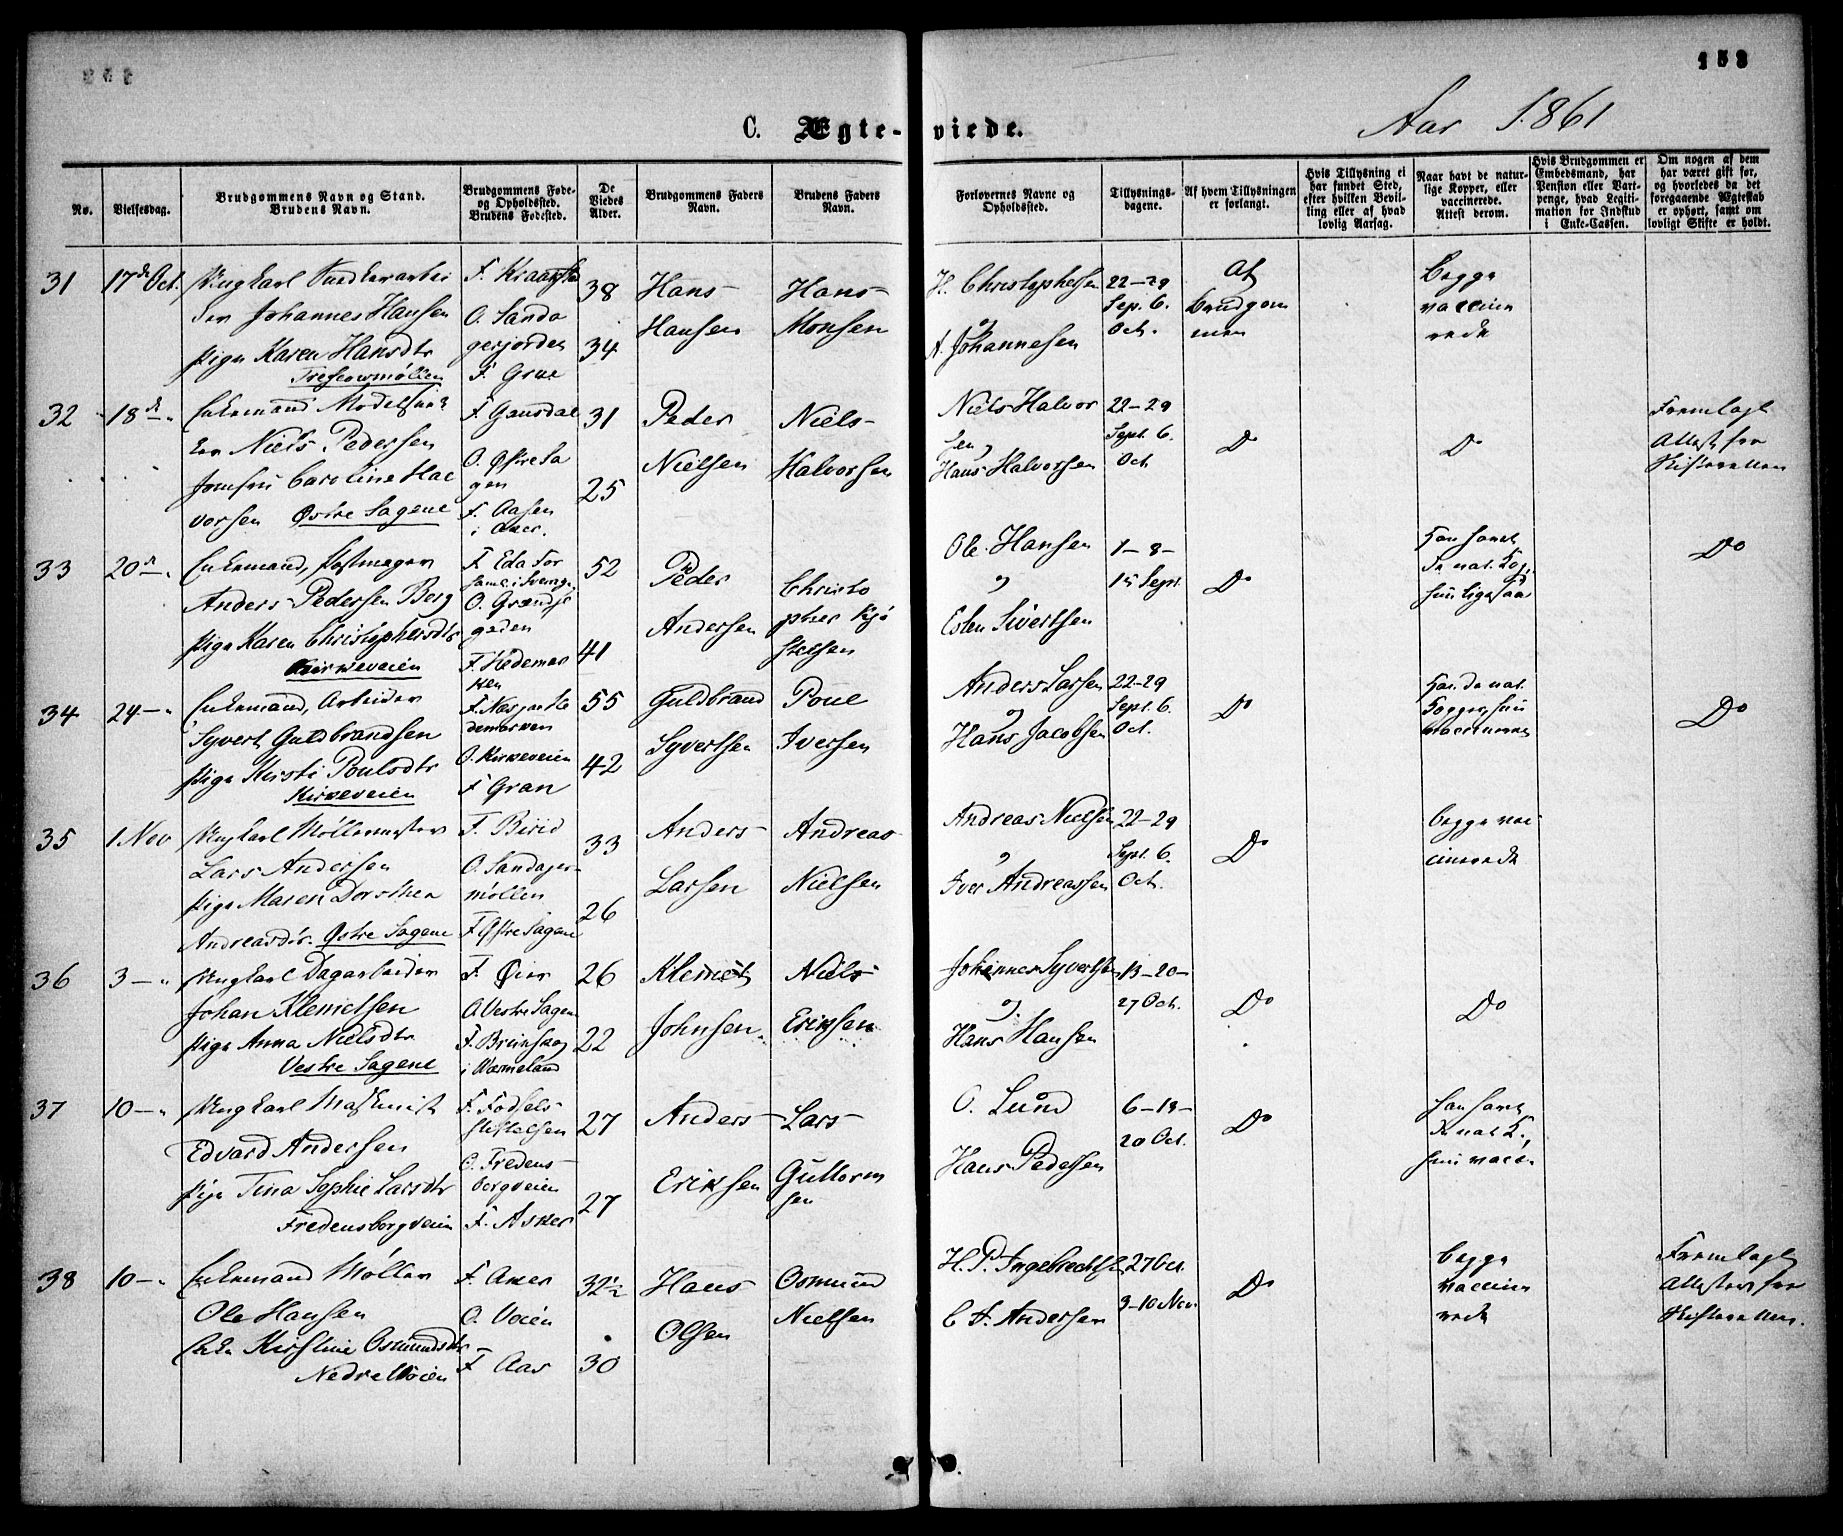 153
C. Ægte-viede.
Aar 1861
No.
Vielsesdag.
Brudgommens Navn og Stand.
Brudens Navn.
Brudgommens Føde-
og Opholdssted.
Brudens Fødested.
De
Viedes
Alder.
Brudgommens Faders
Navn.
Brudens Faders
Navn.
Forlovernes Navne og
Opholdssted.
Tillysnings-
dagene.
Af hvem Tillysningen
er forlangt.
Hvis Tillysning ei
har fundet Sted,
efter hvilken Bevil-
ling eller af hvad
lovlig Aarsag.
Naar havt de natur-
lige Kopper, eller
vaccinerede.
Attest derom.
Hvis Brudgommen er
Embedsmand, har
Pension eller Vart-
penge, hvad Legiti-
mation for Indskud
i Enke-Cassen.
Om nogen af dem
har været gift før,
og hvorledes da det
foregaaende Ægteskab
er ophørt, samt om
lovligt Skifte er holdt.
31 17de Oct. Ungkarl
Johannes Hansen
Pige Karen Hansdtr
F.
O. Sanda
gerjordet
F. Grue
38
34
Hans
Hansen
Hans
Monsen
H. Christophersen
og
A. Johannesen
22-29
Sep. 6.
Oct.
Af
brudgom
men
begge
vaccine
rede
32 18de " Enkemand
Niels Pedersen
Jomfru Caroline Hal
vorsen Østre Sagene
F. Gausdal
O. Østre Sa
gen
F. Aasen
i Aker.
31
25
Peder
Nielsen
Niels
Halvorsen
Niels Halvor
sen og
Hans Halvorsen
22-29
Sept. 6.
Oct
Do
Do
Fremlagt
Attest fra
Skifteretten
33 20de " Enkemand,
Anders Pedersen Berg
Pige Karen Christophersdtr
Kirkeveien
F. Eda For
saml. i Sverige
O. Grændse
gaden
F. Hedemar
ken
52
41
Peder
Andersen
Christo
pher Kjø
stelsen
Ole Hansen
og
Esten Sivertsen
1-8-
15 Sept.
Do
Do
34 24 " Enkemand, Arbeider
Syvert Guldbrandsen
Pige Kersti Poulsdtr
Kirkeveien
F. Næs paa He
demarken
O. Kirkeveien
F. Gran
55
42
Guldbrand
Syvertsen
Poul
Iversen
Anders Larsen
og
Hans Jacobsen
22-29
Sept. 6.
Oct.
Do
Do
35 1 Nov Ungkarl Møllemester
Lars Andersen
Pige Maren Dorthea
Andreasdtr. Østre Sagene
F. Birid
O. Sandager-
møllen
F. Østre Sagene
33
26
Anders
Larsen
Andreas
Nielsen
Andreas Nielsen
og
Iver Andreassen
22-29
Sept. 6.
Oct.
Do
begge vac
cinerede
36 3 " Ungkarl Dagarbeider
Johan Klemetsen
Pige Anna Nielsdtr
Vestre Sagene
F. Øier
O. Vestre Sagen
F.
i Værmeland
26
22
Klemet
Johnsen
Niels
Eriksen
Johannes Syvertsen
og
Hans Hansen
13-20-
27 Oct.
Do
Do
37 10 " Ungkarl
Edvard Andersen
Pige Tina Sophie Larsdtr
Fredensborgveien
F. Fødsels
stiftelsen
O. Fredens-
borgveien
F. Asker
27
27
Anders
Eriksen
Lars
Guttorm
sen
O. Lund
Hans Pedersen
6-13-
20 Oct.
Do
38 10 " Enkemand Møller
Ole Hansen
Enke Kirstine Osmundsdtr
Nedre Vøien
F. Aker
O. Vøien
F. Aas
32½
30
Hans
Olsen
Osmund
Nielsen
H. P. Ingebrechtsen
C. F. Andersen
27 Oct.
3-10 Nov.
Do
begge
vaccine
rede
Fremlagt
Attester fra
Skifteretten.